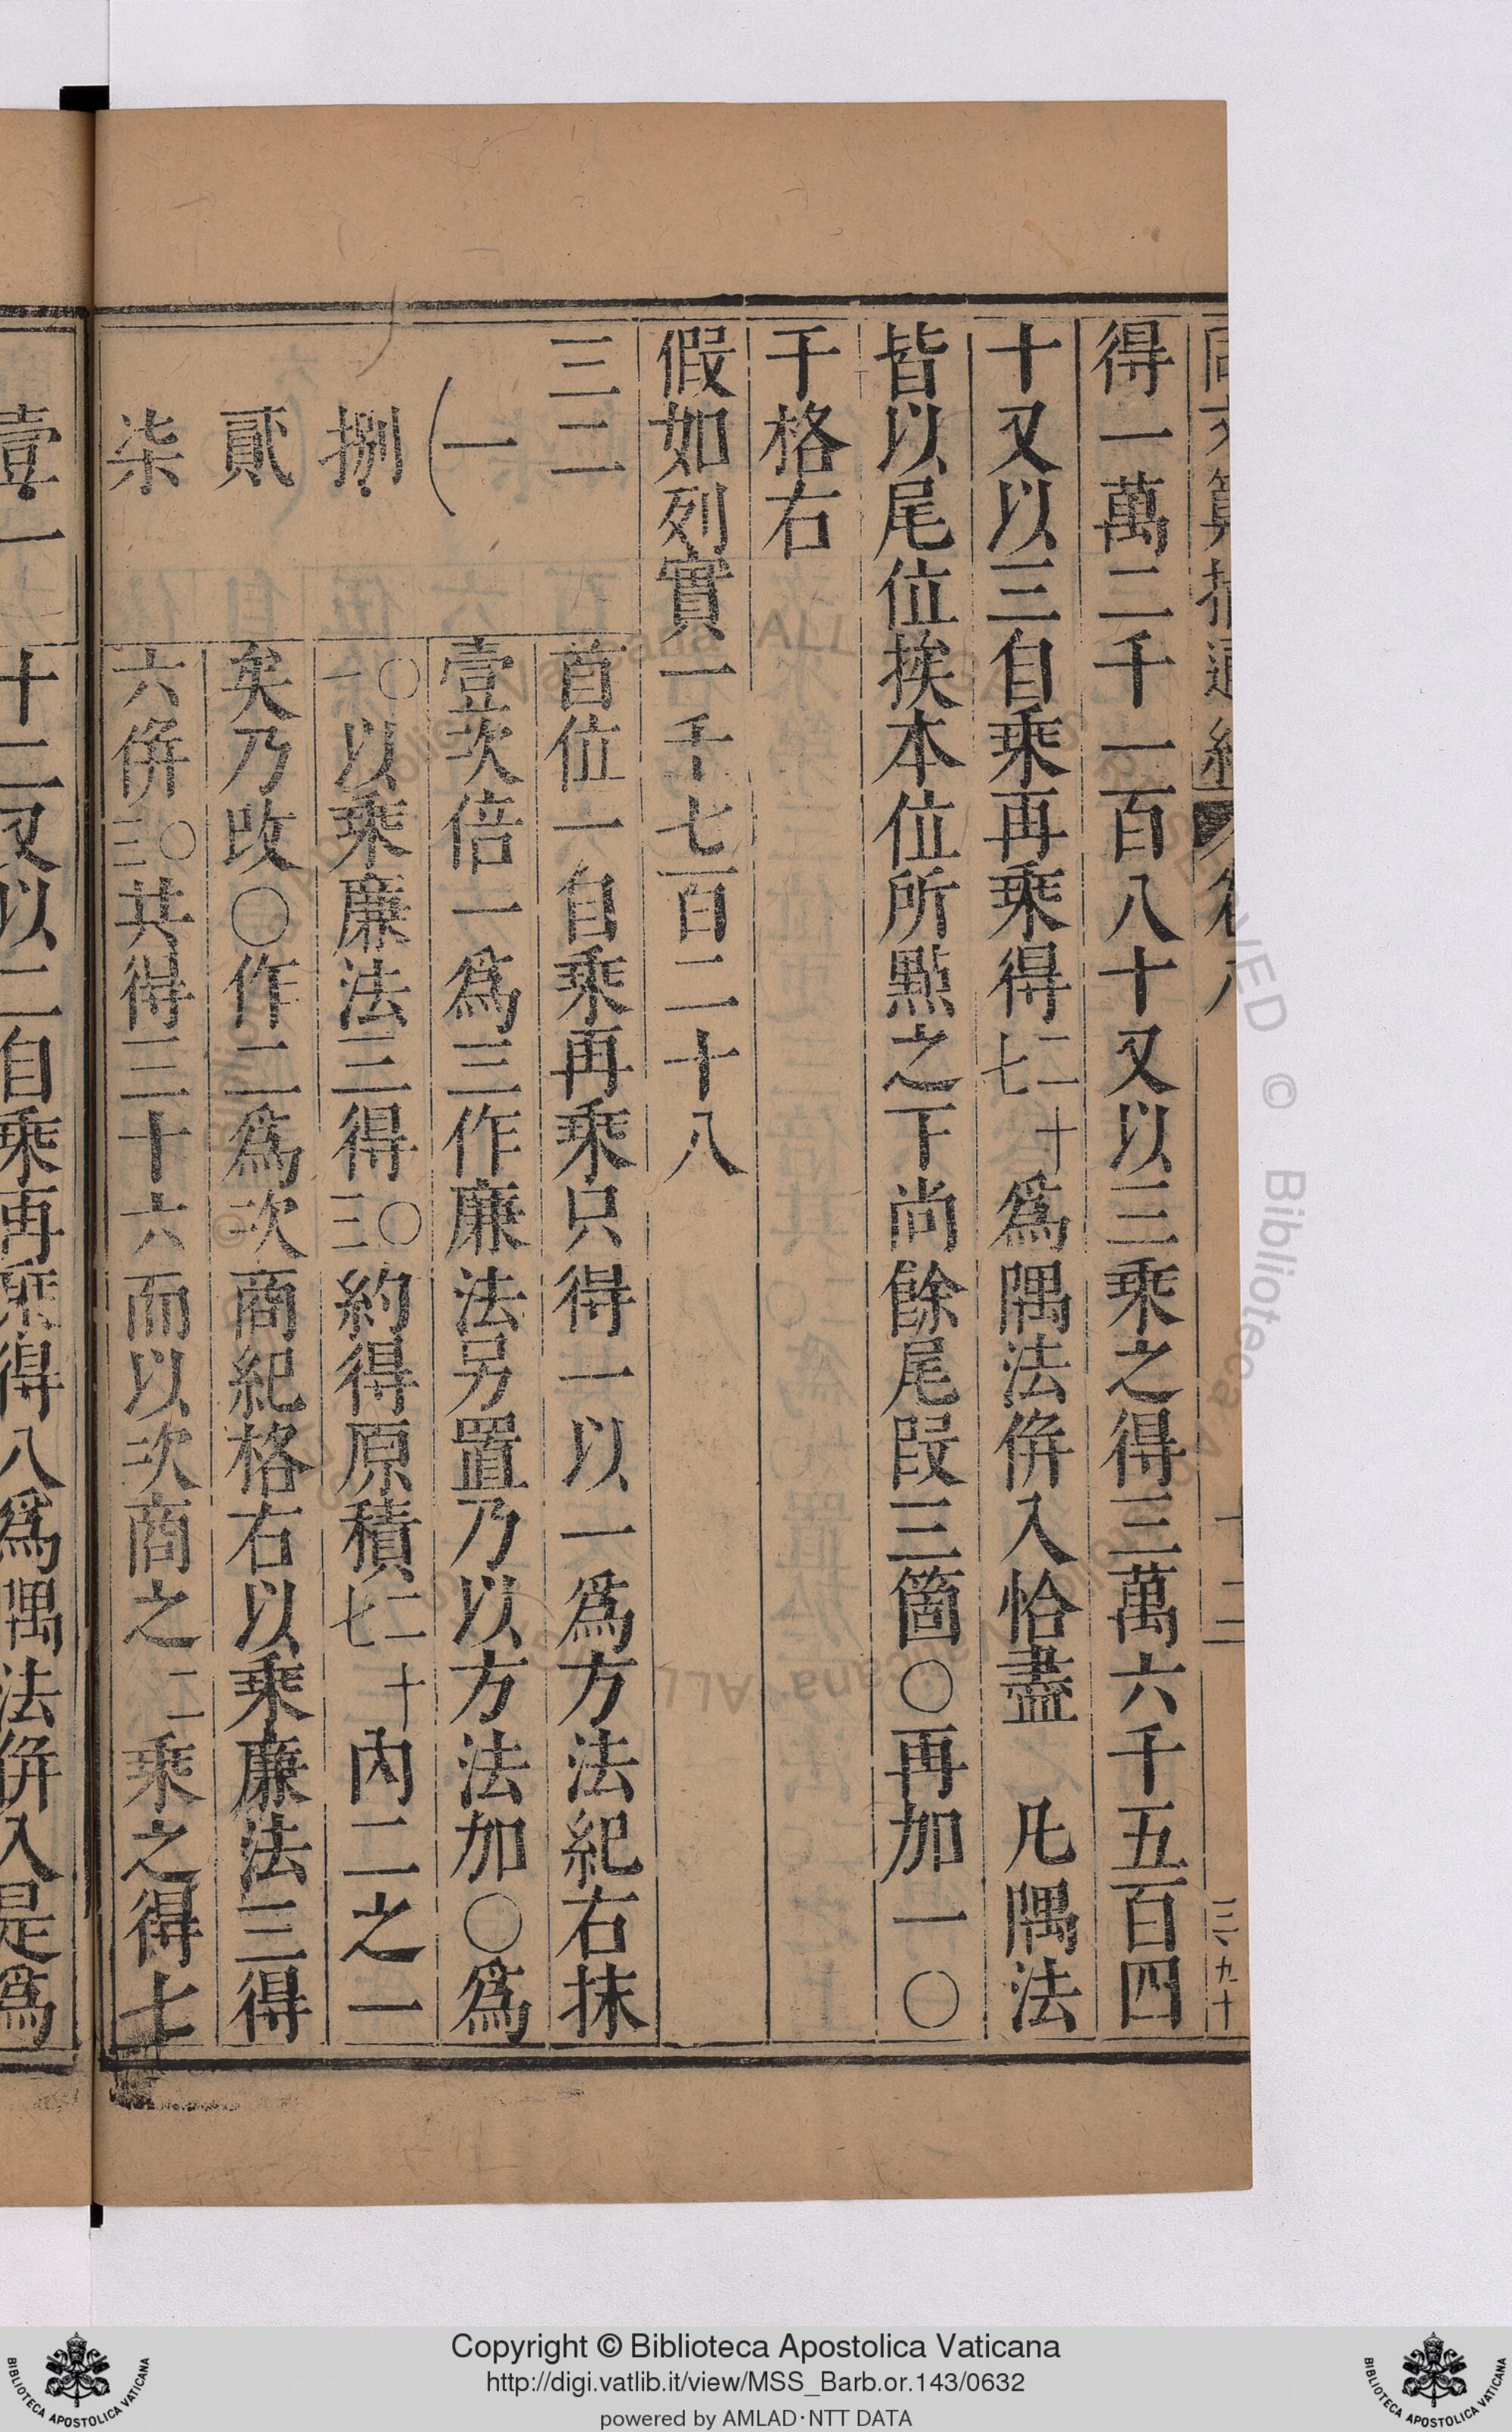 得一萬二千一百八十又以三乘之得三萬六千五百四
十又以三自乘再乘得二十七為隅法併入恰盡 凡隅法
皆以尾位挨本位所點之下尚餘尾段三箇〇再加一〇
于格右
假如列實一千七百二十八
三二
首位一自乘再乘只得一以一為方法紀右抹
(一
壹次倍一為三作廉法另置乃以方法加〇為
捌
一〇以乘廉法三得三〇約得原積七十二內二之一
貳
矣乃改〇作二為次商紀格右以乘廉法三得
柒
六併三〇共得三十六而以次商之二乘之得七
壹一
十二又以二自乘再乘得八為隅法併入是為
三、九十
Copyright © Biblioteca Apostolica Vaticana
http://digi.vatlib.it/view/MSS_Barb.or.143/0632
powered by AMLAD·NTT DATA
BIBLIOTECA APOSTOLICA VATICANA
BIBLIOTECA APOSTOLICA VATICANA